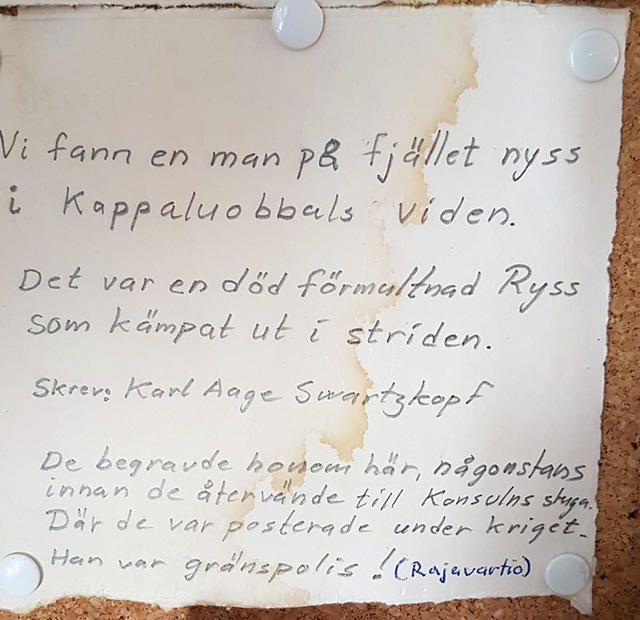 Vi fann en man på fjället nyss
i Kappaluobbals viden.
Det var en död förmultnad Ryss
som kämpat ut i striden.
Skrev: Karl Aage Swartzkopf
De begravde honom här, någonstans
innan de återvände till Konsulns stuga.
Där de var posterade under kriget.
Han var gränspolis! (Rajavartio)